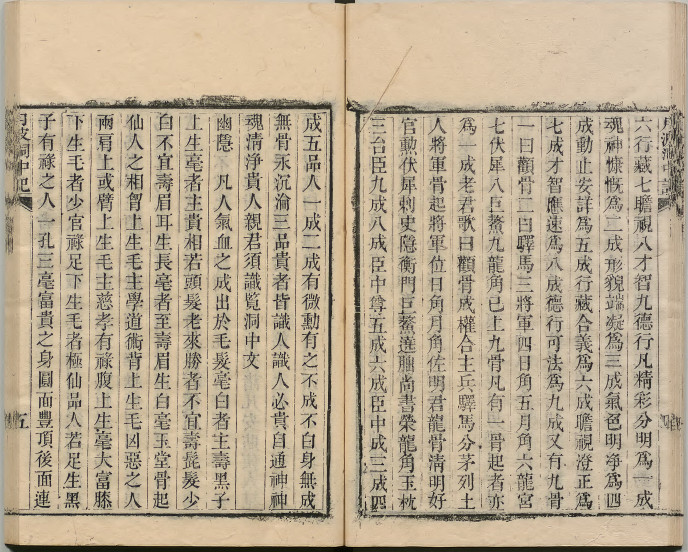 六行藏七瞻視八才智九德行凡精彩分明爲一成
魂神慷慨爲二成形貌端凝爲三成氣色明净爲四
成動止安詳爲五成行藏合義爲六成瞻視澄正爲
七成才智應速爲八成德行可法爲九成又有九骨
一曰顴骨二曰驛馬三將軍四日角五月角六龍宮
七伏犀八巨鰲九龍角已上九骨凡有一骨起者亦
爲一成老君歌曰顴骨成權合主兵驛馬分茅列土
人將軍骨起將軍位日角月角佐明君龍骨清明好
官勲伏犀刺史隠衡門巨鰲蓬朏尚書榮龍角玉枕
三台臣九成八成臣中尊五成六成臣中成三成四
成五品人一成二成有微勲有之不成不白身無成
無骨永沉淪三品貴者皆識人識人必貴自通神神
魂清淨貴人親君須識覧洞中文
幽隱 凡人氣血之成出於毛髮毫白者主壽黑子
上生毫者主貴相若頭髮老來勝者不宜壽髭髮少
白不宜壽眉耳生長毫者至壽眉生白毫玉堂骨起
仙人之相智上生毛主學道術背上生毛凶惡之人
兩肩上或臂上生毛主慈孝有祿腹上生毫大富膝
下生毛者少官祿足下生毛者極仙品人若足生黑
子有祿之人一孔三毫富貴之身圓面豐頂後面連
月波洞中記
五